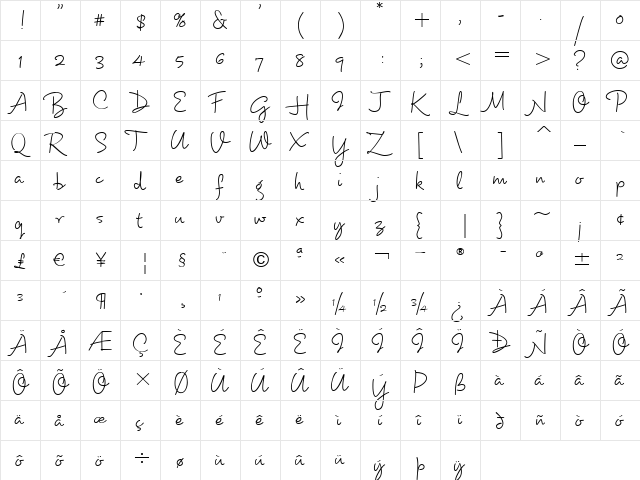 ! " # $ % & ' ( ) * + , - . / 0
1 2 3 4 5 6 7 8 9 : ; < = > ? @
A B C D E F G H I J K L M N O P
Q R S T U V W X Y Z [ \ ] ^ _ `
a b c d e f g h i j k l m n o p
q r s t u v w x y z { | } ~ ¡ ¢
£ € ¥ ¦ § ¨ © ª « ¬ - ® ¯ ° ± ²
³ ´ ¶ · ¸ ¹ º » ¼ ½ ¾ ¿ À Á Â Ã
Ä Å Æ Ç È É Ê Ë Ì Í Î Ï Ð Ñ Ò Ó
Ô Õ Ö × Ø Ù Ú Û Ü Ý Þ ß à á â ã
ä å æ ç è é ê ë ì í î ï ð ñ ò ó
ô õ ö ÷ ø ù ú û ü ý þ ÿ